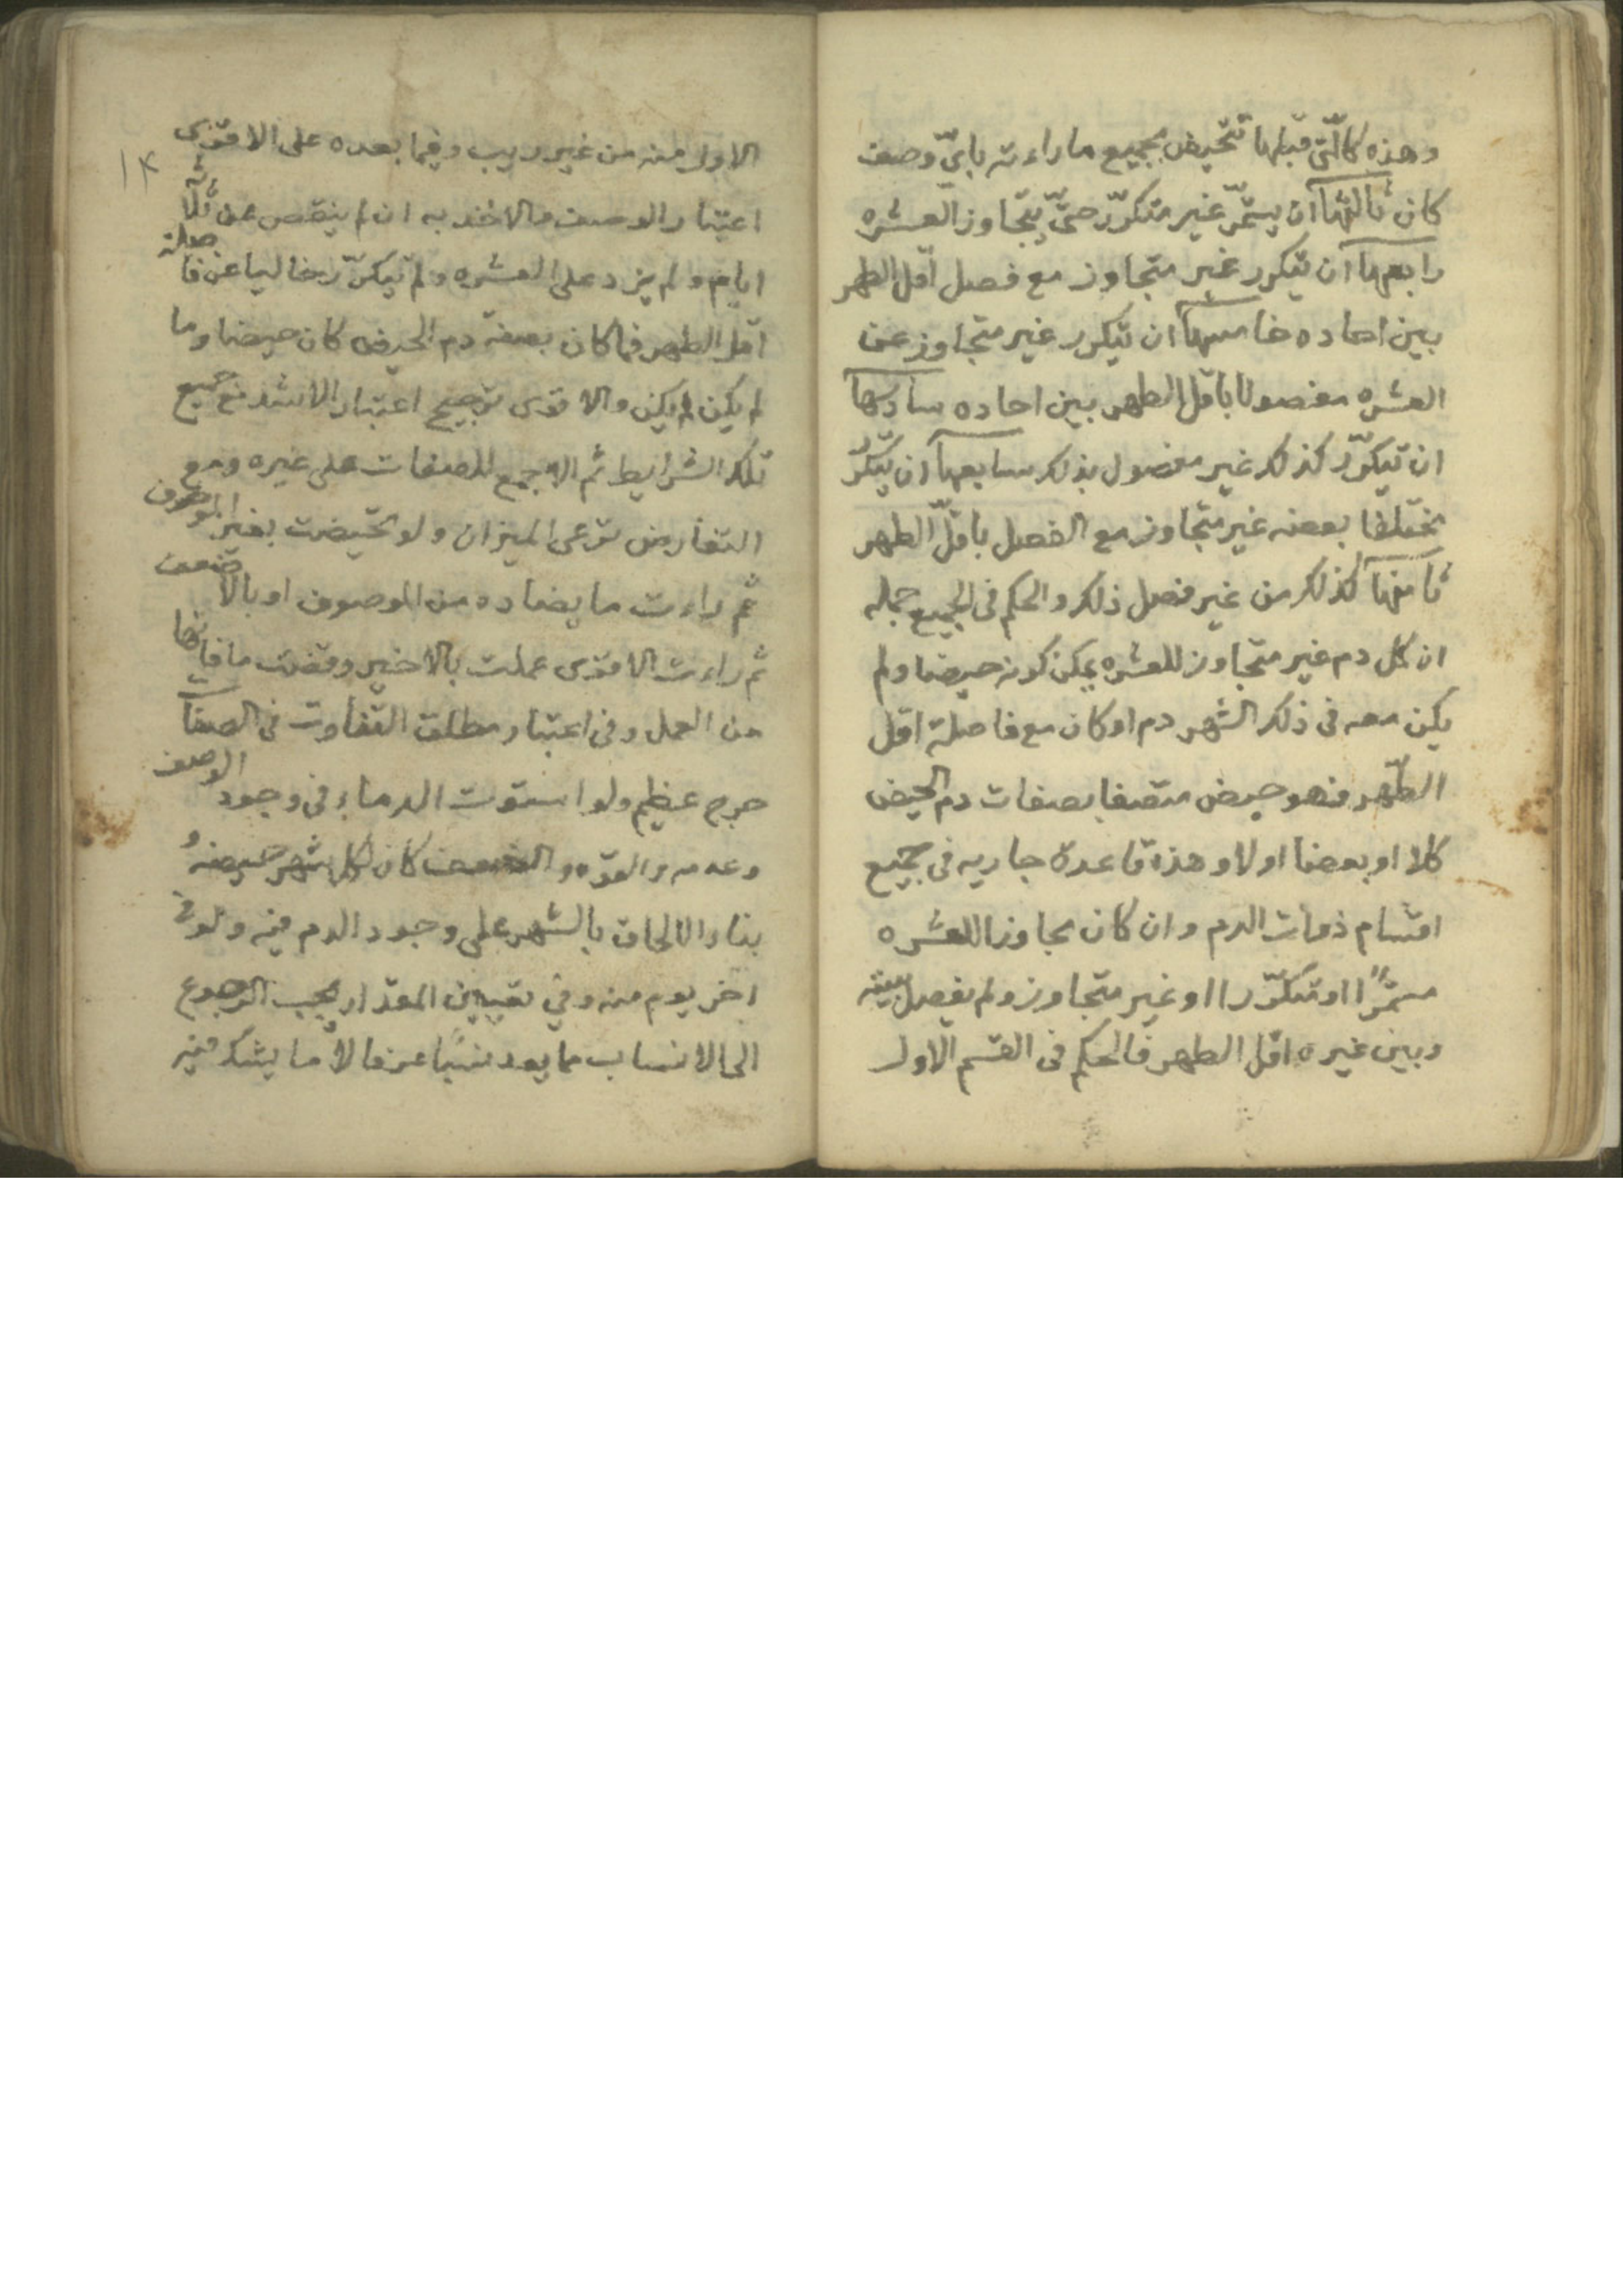 وهذه كالّتى قبلها تتحيض بجميع ماراءته باىّ وصف
كان ثالثها ان يستمرّ غير متكرّر حتّى يتجاوز العشره
رابعها ان يتكرر غير متجاوز مع فصل اقل الطهر
بين احاده خامسها ان يتكرر غير متجاوز عن
العشره مفصولا باقل الطهر بين احاده سادسها
ان يتكرّر كذلك غير مفصول بذلك سابعها ان يتكرّر
مختلفا بعضه غير متجاوز مع الفصل باقلّ الطهر
ثامنها كذلك من غير فصل ذلك والحكم فى الجميع جمله
ان كل دم غير متجاوز للعشره يمكن كونه حيضا ولم
يكن معه فى ذلك الشهر دم اوكان مع فاصلة اقل
الطّهر فهو حيض متصفا بصفات دم الحيض
كلا او بعضا اولا وهذه قاعدة جاريه فى جميع
اقسام ذوات الدم وان كان مجاوزا للعشره
مستمرًّا او متكرّرا او غير متجاوز ولم يفصل بينه
وبين غيره اقل الطهر فالحكم فى القسم الاول
١٤
الاول منه من غير ريب وفيما بعده على الاقوى
اعتبار الوصف والاخذ به ان لم ينقص عن ثلاثه
ايام ولم يزد على العشره ولم يتكرّر خاليا عن فاصلة
اقل الطهر فما كان بصفة دم الحيض كان حيضا وما
لم يكن لم يكن والاقوى ترجيح اعتبار الاشد مع جميع
تلك الشرايط ثم الاجمع للصفات على غيره ومع
التعارض ترعى الميزان ولو تحيضت بغير الموصوف
ثم راءت ما يضاده من الموصوف او بالاضعف
ثم راءت الاقوى عملت بالاخير وقضت ما فاتها
من العمل وفى اعتبار مطلق التفاوت فى الصفات
حرج عظيم ولو استوت الدماء فى وجود الوصف
وعدمه والقوّه والضعف كان لكل شهر حيضه
بناء الالحاق بالشهر على وجود الدم فيه ولو فى
اخر يوم منه وفي تعيين المقدار يجب الرجوع
الى الانساب مما يعد نسبا عرفا لا ما يشك فيه